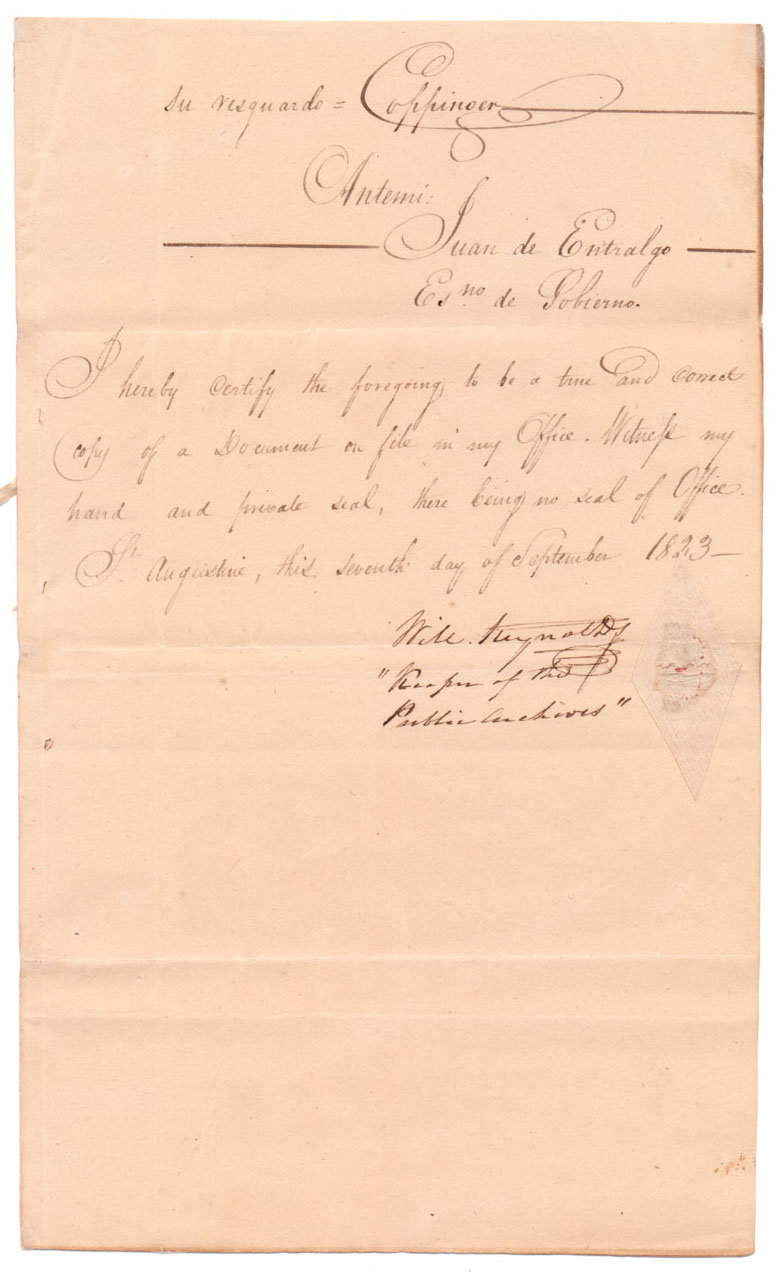 su resguardo = Coppinger
Antemi:
Juan de Entralgo
Es.no de Gobierno.
I hereby certify the foregoing to be a true and correct
copy of a Document on file in my Office. Witness my
hand and private seal, there being no seal of Office.
St. Augustine, this seventh day of September 1823—
Will. Reynolds
"Keeper of the
Public Archives"